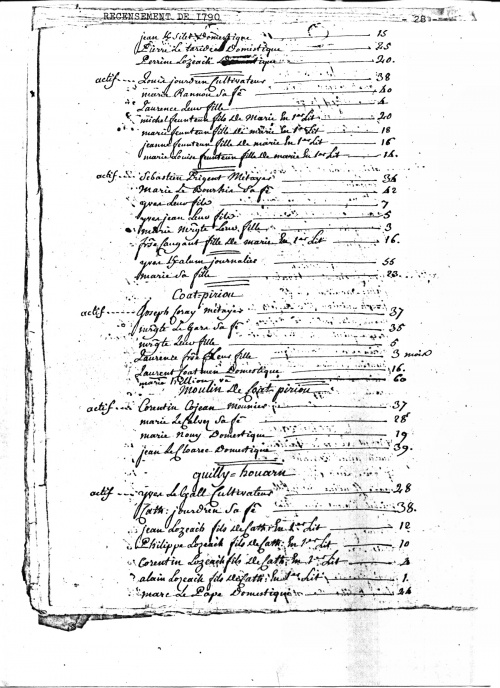 RECENSEMENT DE 1790
28
jean Domestique 15
Pierre Le Domestique 25
Perrine Lozeach Domestique 20
actif Louis jourdren Cultivateur 38
marie Rannou Sa fe 40
Laurence leur fille 4
michel feunteun fils de Marie En 1er Lit 20
marie feunteun fille de marie En 1er Lit 18
jeanne feunteun fille de marie En 1er Lit 16
marie Louise feunteun fille de marie En 1er Lit 14
actif Sebastien Brigent Mitayer 34
Marie Le Bourhis Sa fe 42
yves leur fils 7
yves jean leur fils 5
Marie Mrgte Leur fille 3
fille De marie En 1er Lit 16
yves journalier 55
Marie Sa fille 23
Coat-piriou
actif Joseph Coray mitayer 37
mrgte Le Gars Sa fe 35
mrgte Leur fille 5
Laurence Leur fille 3 mois
Laurent Domestique 16
marie 60
Moulin De Coat piriou
actif Corentin Cojean meunier 37
marie Le Calvez Sa fe 28
marie Nouy Domestique 19
jean Le Cloarec Domestique 39
quilly=houarn
actif yves Le Gall Cultivateur 28
Cath: jourdren Sa fe 38
jean Lozeach fils de Cath: En 1er Lit 12
Philippe Lozeach fils De Cath: En 1er Lit 10
Corentin Lozeach fils De Cath: En 1er Lit 4
alain Lozeach fils De Cath: En 1er Lit 1
marc Le Pape Domestique 24